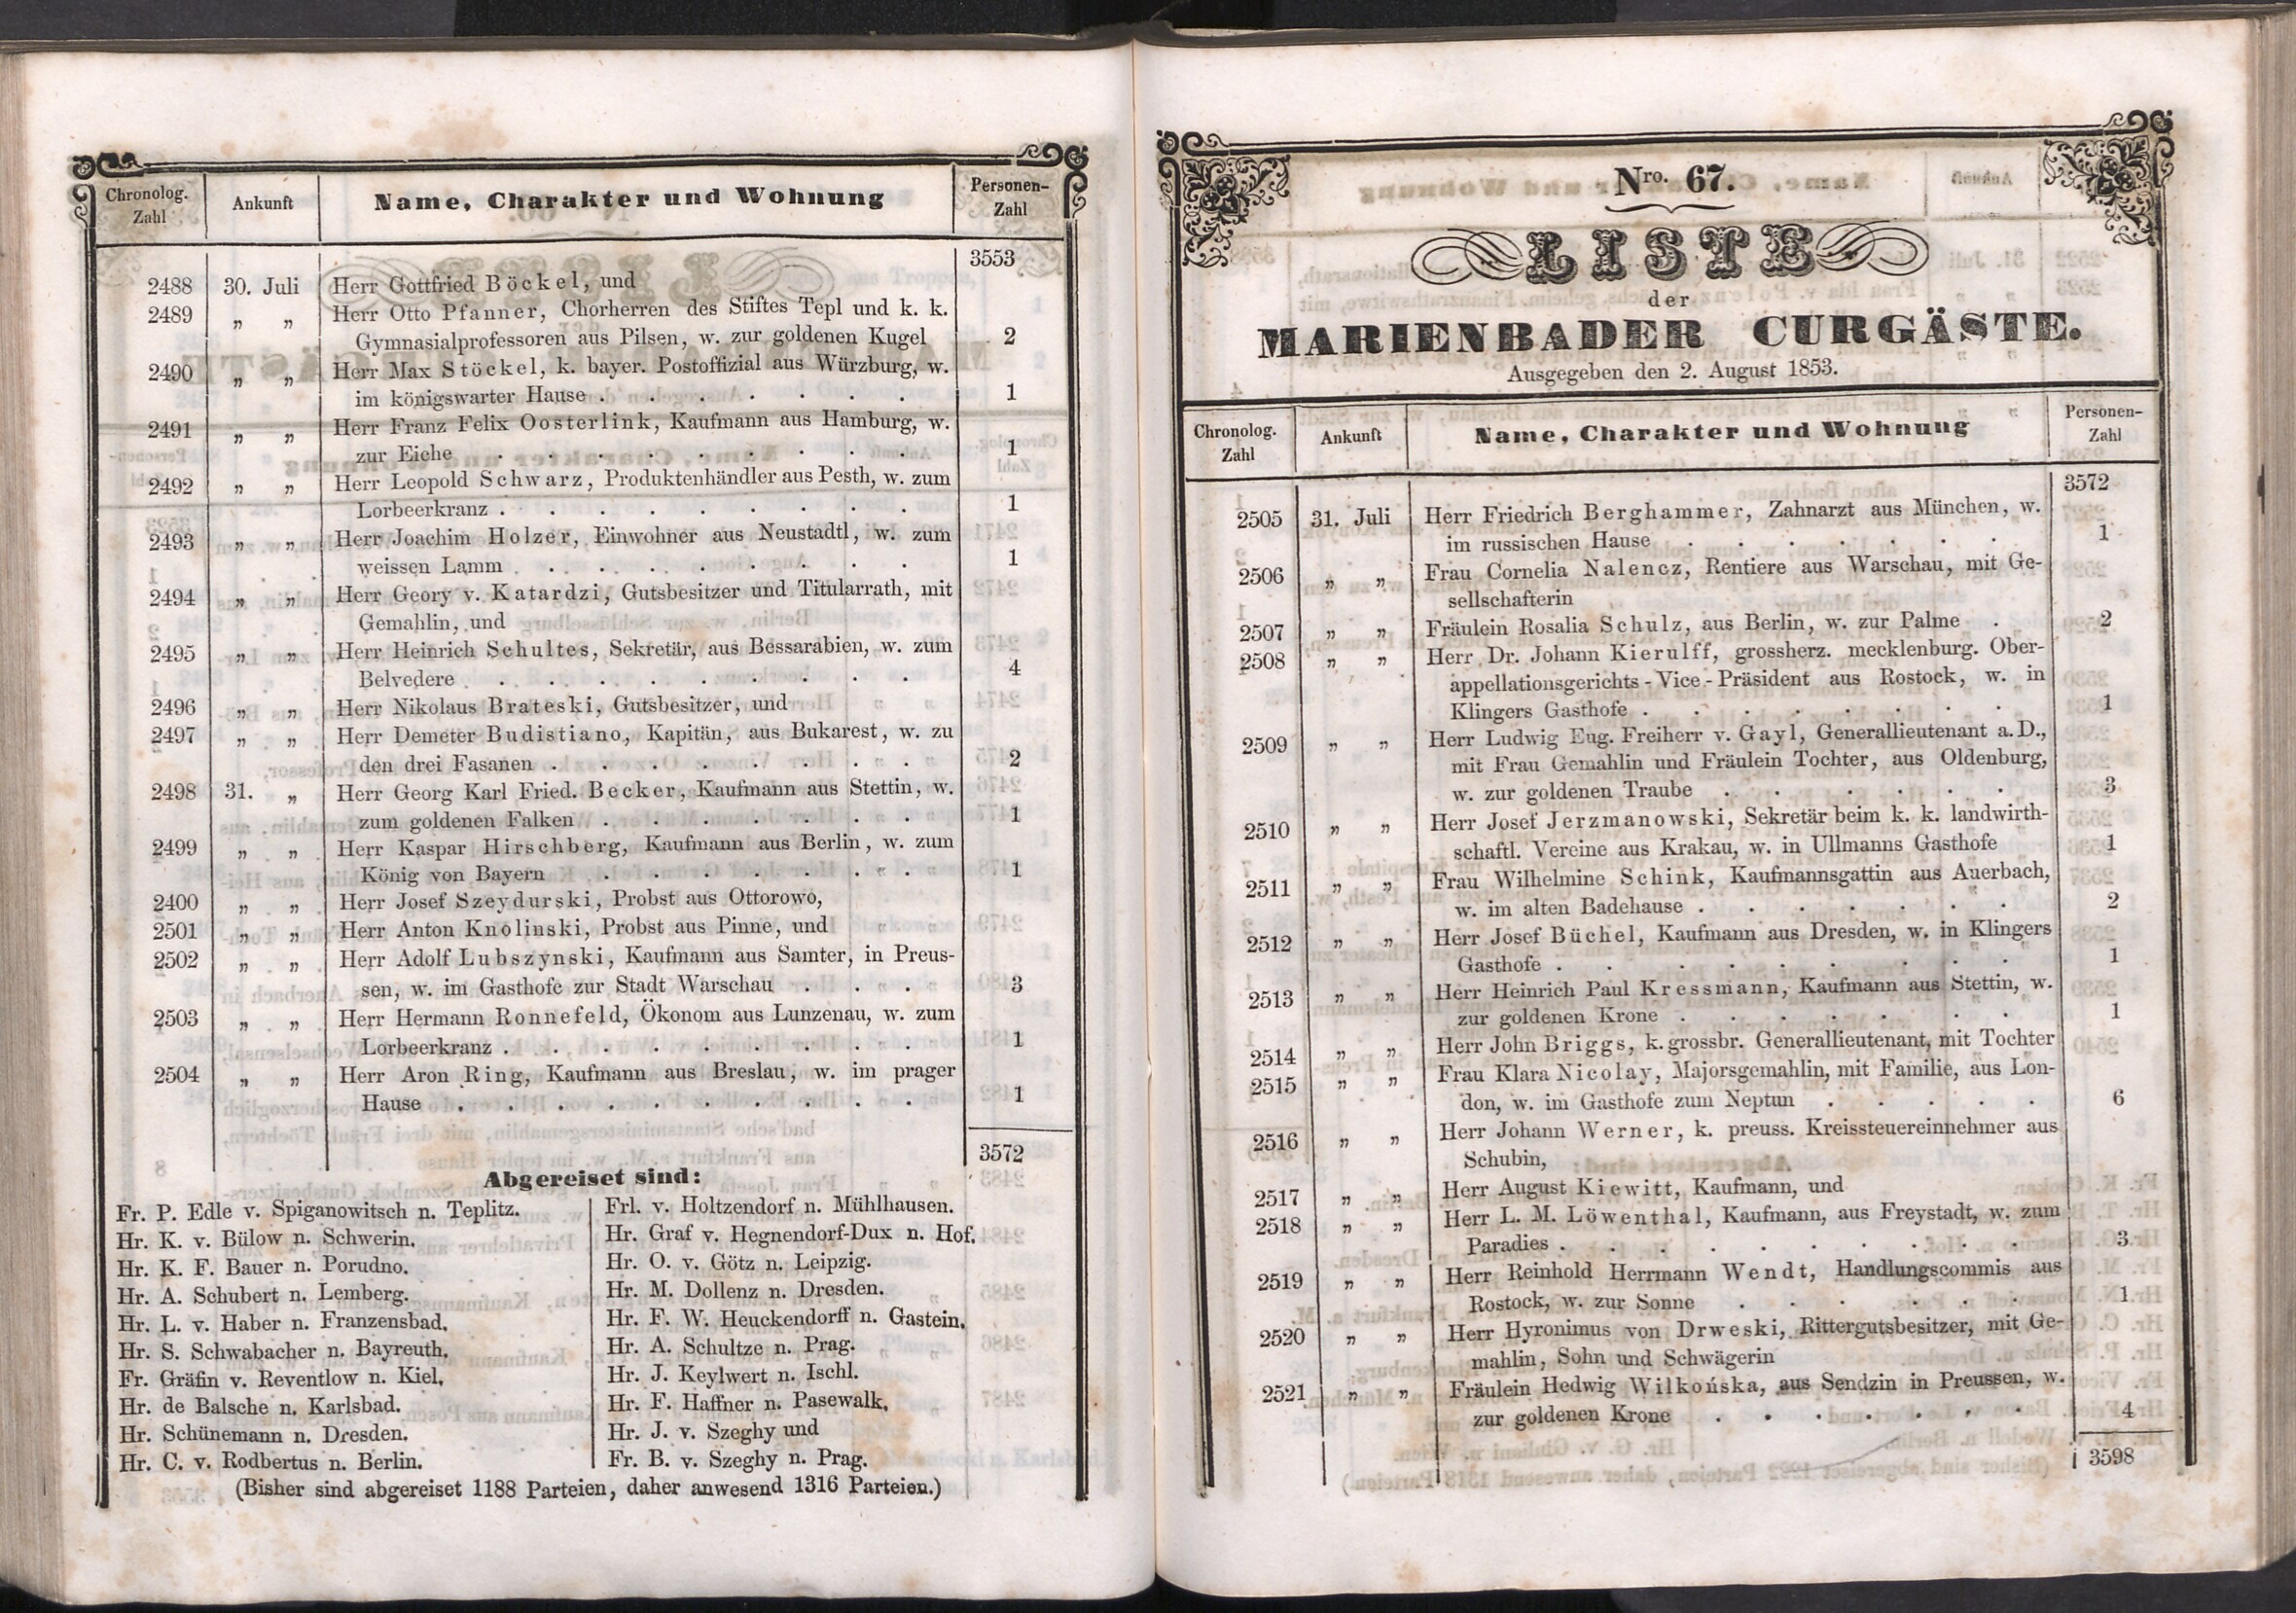 Chronolog. Zahl Ankunft Name, Charakter und Wohnung Personen-Zahl
3553
2488 30. Juli Herr Gottfried Böckel, und
2489 „ „ Herr Otto Pfanner, Chorherren des Stiftes Tepl und k. k.
Gymnasialprofessoren aus Pilsen, w. zur goldenen Kugel 2
2490 „ „ Herr Max Stöckel, k. bayer. Postoffizial aus Würzburg, w.
im königswarter Hause . . . . . . . 1
2491 „ „ Herr Franz Felix Oosterlink, Kaufmann aus Hamburg, w.
zur Eiche . . . . . . . . . 1
2492 „ „ Herr Leopold Schwarz, Produktenhändler aus Pesth, w. zum
Lorbeerkranz . . . . . . . . . 1
2493 „ „ Herr Joachim Holzer, Einwohner aus Neustadtl, w. zum
weissen Lamm . . . . . . . . 1
2494 „ „ Herr Geory v. Katardzi, Gutsbesitzer und Titularrath, mit
Gemahlin, und
2495 „ „ Herr Heinrich Schultes, Sekretär, aus Bessarabien, w. zum
Belvedere . . . . . . . . . 4
2496 „ „ Herr Nikolaus Brateski, Gutsbesitzer, und
2497 „ „ Herr Demeter Budistiano, Kapitän, aus Bukarest, w. zu
den drei Fasanen . . . . . . . . 2
2498 31. „ Herr Georg Karl Fried. Becker, Kaufmann aus Stettin, w.
zum goldenen Falken . . . . . . . 1
2499 „ „ Herr Kaspar Hirschberg, Kaufmann aus Berlin, w. zum
König von Bayern . . . . . . . 1
2400 „ „ Herr Josef Szeydurski, Probst aus Ottorowo,
2501 „ „ Herr Anton Knolinski, Probst aus Pinne, und
2502 „ „ Herr Adolf Lubszynski, Kaufmann aus Samter, in Preus-
sen, w. im Gasthofe zur Stadt Warschau . . . 3
2503 „ „ Herr Hermann Ronnefeld, Ökonom aus Lunzenau, w. zum
Lorbeerkranz . . . . . . . . . 1
2504 „ „ Herr Aron Ring, Kaufmann aus Breslau, w. im prager
Hause . . . . . . . . . . 1
3572
Abgereiset sind:
Fr. P. Edle v. Spiganowitsch n. Teplitz.
Hr. K. v. Bülow n. Schwerin.
Hr. K. F. Bauer n. Porudno.
Hr. A. Schubert n. Lemberg.
Hr. L. v. Haber n. Franzensbad.
Hr. S. Schwabacher n. Bayreuth.
Fr. Gräfin v. Reventlow n. Kiel.
Hr. de Balsche n. Karlsbad.
Hr. Schünemann n. Dresden.
Hr. C. v. Rodbertus n. Berlin.
Frl. v. Holtzendorf n. Mühlhausen.
Hr. Graf v. Hegnendorf-Dux n. Hof.
Hr. O. v. Götz n. Leipzig.
Hr. M. Dollenz n. Dresden.
Hr. F. W. Heuckendorff n. Gastein.
Hr. A. Schultze n. Prag.
Hr. J. Keylwert n. Ischl.
Hr. F. Haffner n. Pasewalk.
Hr. J. v. Szeghy und
Fr. B. v. Szeghy n. Prag.
(Bisher sind abgereiset 1188 Parteien, daher anwesend 1316 Parteien.)
Nro. 67.
LISTE
der
MARIENBADER CURGÄSTE.
Ausgegeben den 2. August 1853.
Chronolog. Zahl Ankunft Name, Charakter und Wohnung Personen-Zahl
3572
2505 31. Juli Herr Friedrich Berghammer, Zahnarzt aus München, w.
im russischen Hause . . . . . . . 1
2506 „ „ Frau Cornelia Nalencz, Rentiere aus Warschau, mit Ge-
sellschafterin
2507 „ „ Fräulein Rosalia Schulz, aus Berlin, w. zur Palme . 2
2508 „ „ Herr Dr. Johann Kierulff, grossherz. mecklenburg. Ober-
appellationsgerichts-Vice-Präsident aus Rostock, w. in
Klingers Gasthofe . . . . . . . . 1
2509 „ „ Herr Ludwig Eug. Freiherr v. Gayl, Generallieutenant a. D.,
mit Frau Gemahlin und Fräulein Tochter, aus Oldenburg,
w. zur goldenen Traube . . . . . . 3
2510 „ „ Herr Josef Jerzmanowski, Sekretär beim k. k. landwirth-
schaftl. Vereine aus Krakau, w. in Ullmanns Gasthofe 1
2511 „ „ Frau Wilhelmine Schink, Kaufmannsgattin aus Auerbach,
w. im alten Badehause . . . . . . . 2
2512 „ „ Herr Josef Büchel, Kaufmann aus Dresden, w. in Klingers
Gasthofe . . . . . . . . . 1
2513 „ „ Herr Heinrich Paul Kressmann, Kaufmann aus Stettin, w.
zur goldenen Krone . . . . . . . 1
2514 „ „ Herr John Briggs, k. grossbr. Generallieutenant, mit Tochter
2515 „ „ Frau Klara Nicolay, Majorsgemahlin, mit Familie, aus Lon-
don, w. im Gasthofe zum Neptun . . . . . 6
2516 „ „ Herr Johann Werner, k. preuss. Kreissteuereinnehmer aus
Schubin,
2517 „ „ Herr August Kiewitt, Kaufmann, und
2518 „ „ Herr L. M. Löwenthal, Kaufmann, aus Freystadt, w. zum
Paradies . . . . . . . . . 3
2519 „ „ Herr Reinhold Herrmann Wendt, Handlungscommis aus
Rostock, w. zur Sonne . . . . . . 1
2520 „ „ Herr Hyronimus von Drweski, Rittergutsbesitzer, mit Ge-
mahlin, Sohn und Schwägerin
2521 „ „ Fräulein Hedwig Wilkońska, aus Sendzin in Preussen, w.
zur goldenen Krone . . . . . . . 4
3598